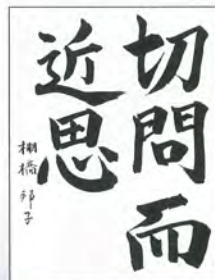 切問而
近思
棚橋邦子